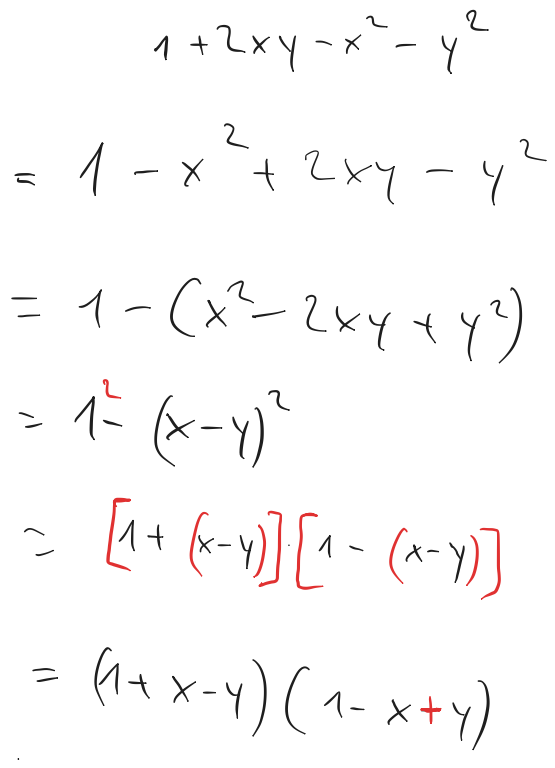 1 + 2xy - x² - y²
= 1 - x² + 2xy - y²
= 1 - (x² - 2xy + y²)
= 1² - (x - y)²
= [1 + (x - y)] · [1 - (x - y)]
= (1 + x - y) (1 - x + y)